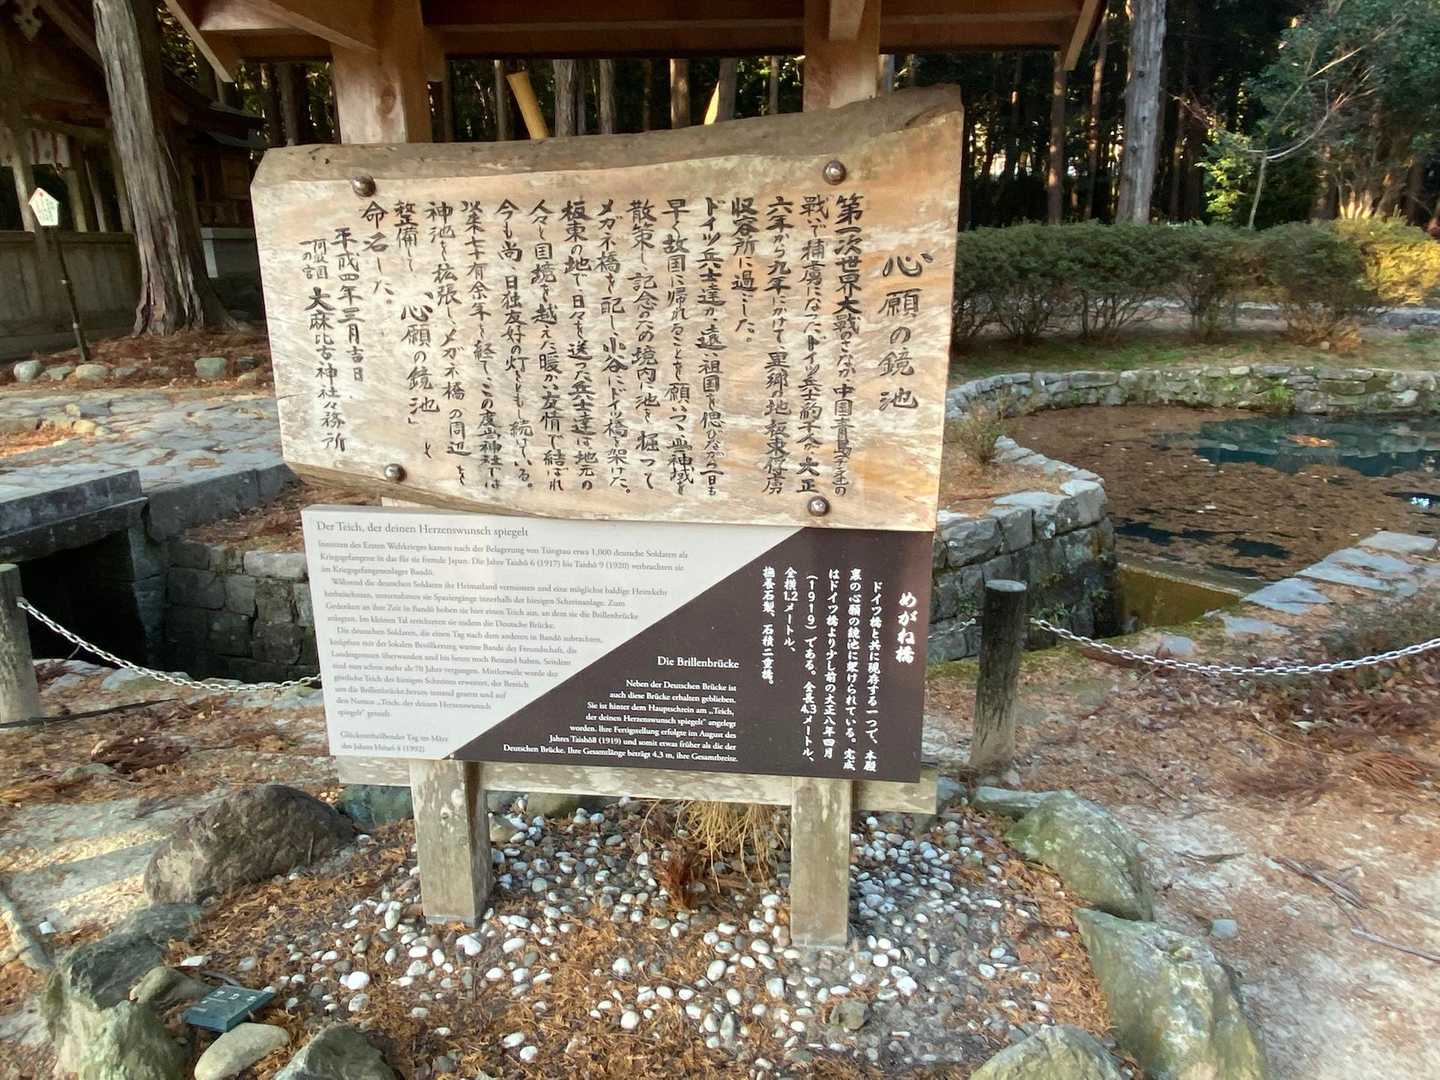 心願の鏡池
第一次世界大戦のさなか中国青島
戦で捕虜になったドイツ兵士約千人が大正
六年から九年にかけて異郷の地板東俘虜
収容所に過ごした。
ドイツ兵士達が遠い祖国を偲びながら一日も
早く故国に帰れることを願いつつ此神域を
散策し記念のため境内に池を掘って
メガネ橋を配し小谷にドイツ橋を架けた。
板東の地で日々を送った兵士達は地元の
人々と国境を越えた暖かい友情で結ばれ
今も尚日独友好の灯をともし続けている。
以来七十有余年を経て、この度当神社では
神池を拡張しメガネ橋の周辺を
整備して「心願の鏡池」と
命名した。
平成四年三月吉日
阿波国一の宮 大麻比古神社社務所
Der Teich, der deinen Herzenswunsch spiegelt
Inmitten des Ersten Weltkrieges kamen nach der Belagerung von Tsingtau etwa 1,000 deutsche Soldaten als
Kriegsgefangene in das für sie fremde Japan. Die Jahre Taishō 6 (1917) bis Taishō 9 (1920) verbrachten sie
im Kriegsgefangenenlager Bandō.
Während die deutschen Soldaten ihr Heimatland vermissten und eine möglichst baldige Heimkehr
herbeisehnten, unternahmen sie Spaziergänge innerhalb der hiesigen Schreinanlage. Zum
Gedenken an ihre Zeit in Bandō hoben sie hier einen Teich aus, an dem sie die Brillenbrücke
anlegten. Im kleinen Tal errichteten sie zudem die Deutsche Brücke.
Die deutschen Soldaten, die einen Tag nach dem anderen in Bandō zubrachten,
knüpften mit der lokalen Bevölkerung warme Bande der Freundschaft, die
Landesgrenzen überwanden und bis heute noch Bestand haben. Seitdem
sind nun schon mehr als 70 Jahre vergangen. Mittlerweile wurde der
göttliche Teich des hiesigen Schreines erweitert, der Bereich
um die Brillenbrücke herum instand gesetzt und auf
den Namen „Teich, der deinen Herzenswunsch
spiegelt" getauft.
Glücksverheißender Tag im März
des Jahres Heisei 4 (1992)
めがね橋
ドイツ橋と共に現存する一つで、本殿
裏の心願の鏡池に架けられている。完成
はドイツ橋より少し前の大正八年四月
(1919)である。全長4.3メートル、
全横1.2メートル、
撫養石製、石積二重橋。
Die Brillenbrücke
Neben der Deutschen Brücke ist
auch diese Brücke erhalten geblieben.
Sie ist hinter dem Hauptschrein am „Teich,
der deinen Herzenswunsch spiegelt" angelegt
worden. Ihre Fertigstellung erfolgte im August des
Jahres Taishō8 (1919) und somit etwas früher als die der
Deutschen Brücke. Ihre Gesamtlänge beträgt 4.3 m, ihre Gesamtbreite.